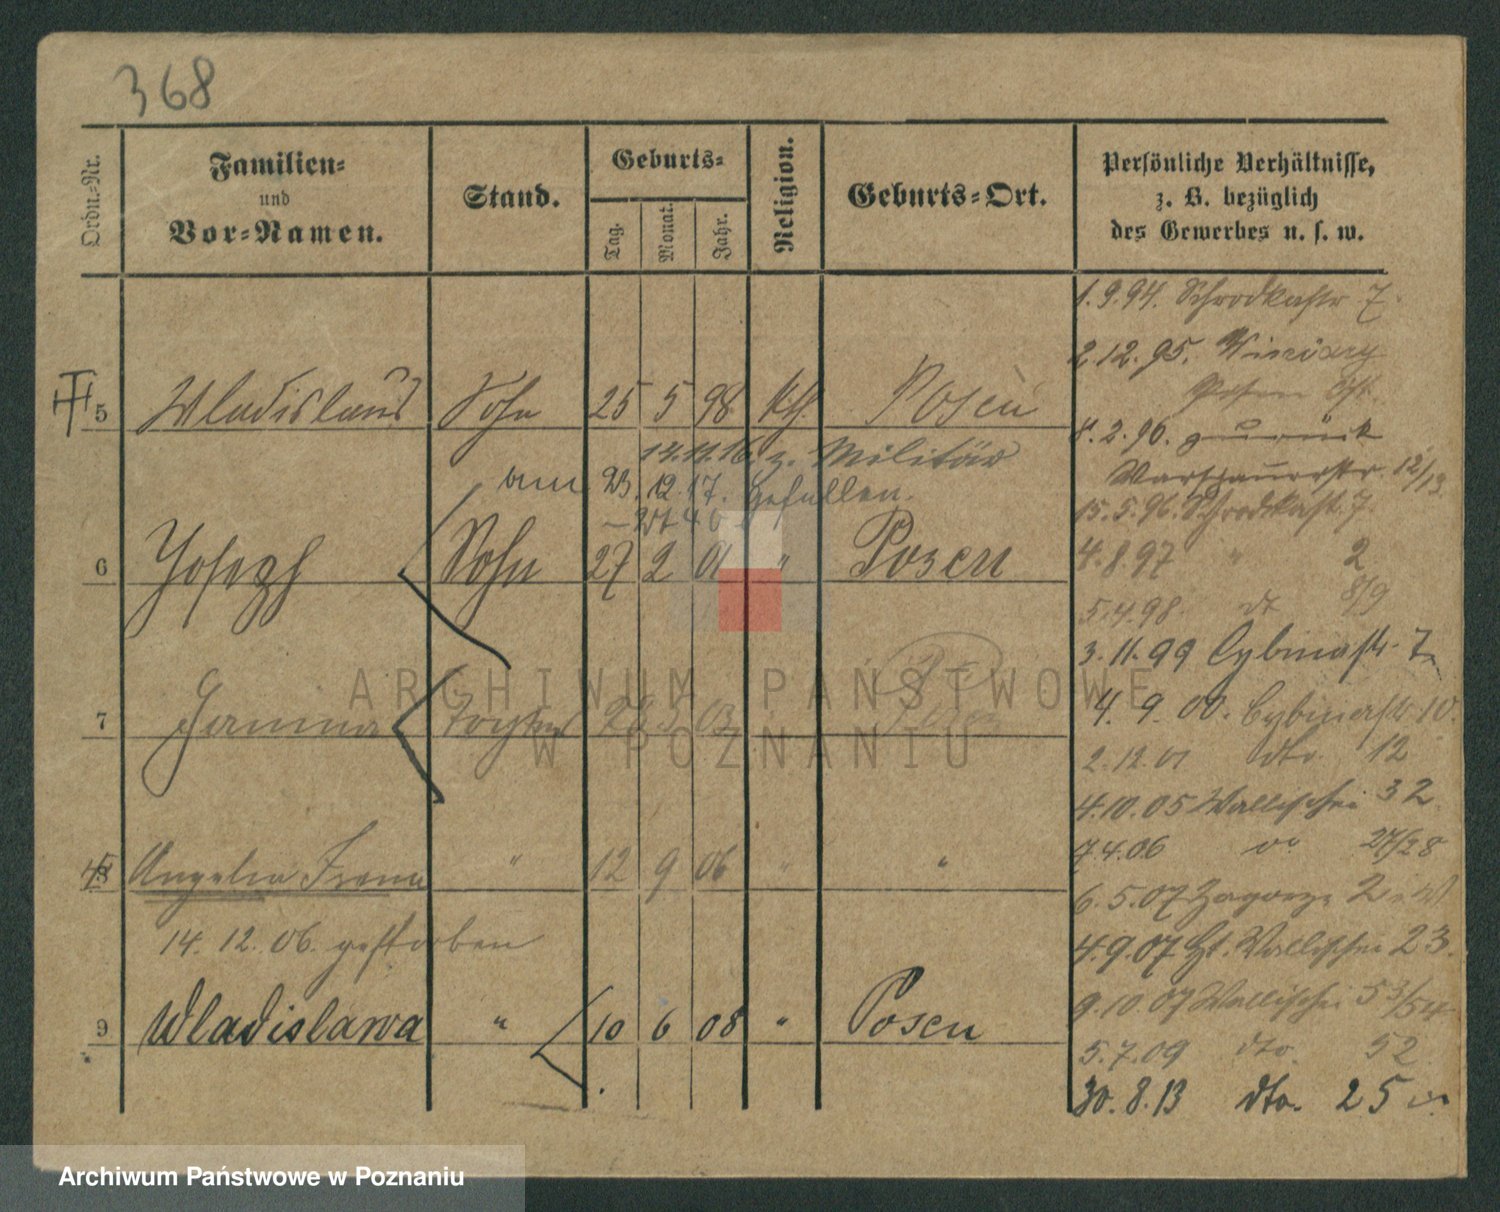 368
Ordn.-Nr.
Familien-
und
Vor-Namen.
Stand.
Geburts-
Tag.
Monat.
Jahr.
Religion.
Geburts-Ort.
Persönliche Verhältnisse,
z. B. bezüglich
des Gewerbes u. s. w.
1.9.94. Schrodkastr 7.
2.12.95.
5 Wladislaus Sohn 25 5 98 kth. Posen
8.2.96. zurück
14.11.16. z. Militär
Warschauerstr. 12/13.
am 23.12.17. Gefallen.
15.5.96. Schrodkast. 7.
6 Joseph Sohn 27 2 01 " Posen
4.8.97 " 2
5.4.98. dt 8/9
3.11.99 Cybinastr. 7
7 Tochter 03 Posen
4.9.00. Cybinastr 10.
2.12.01 dto. 12
4.10.05 Wallischei 32.
7.4.06 27/28
8 Angelia Irena " 12 9 06 " "
6.5.07 Zagorze 2
14.12.06. gestorben
4.9.07 Wallischei 23.
9.10.07 Wallischei 53/54
9 Wladislawa " 10 6 08 " Posen
5.7.09 dto. 52
30.8.13 dto. 25
ARCHIWUM PAŃSTWOWE
W POZNANIU
Archiwum Państwowe w Poznaniu